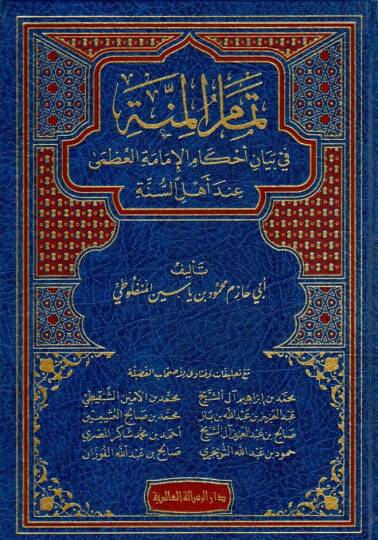 تمام المنة
في بيان أحكام الإمامة العظمى
عند أهل السنة
تأليف
أبي حازم محمود بن ياسين المنفلوطي
مع تعليقات وفتاوى لأصحاب الفضيلة
محمد بن إبراهيم آل الشيخ محمد بن الأمين الشنقيطي
عبد العزيز بن عبد الله بن باز محمد بن صالح العثيمين
صالح بن عبد العزيز آل الشيخ أحمد بن محمد شاكر المصري
حمود بن عبد الله التويجري صالح بن عبد الله الفوزان
دار الرسالة العالمية